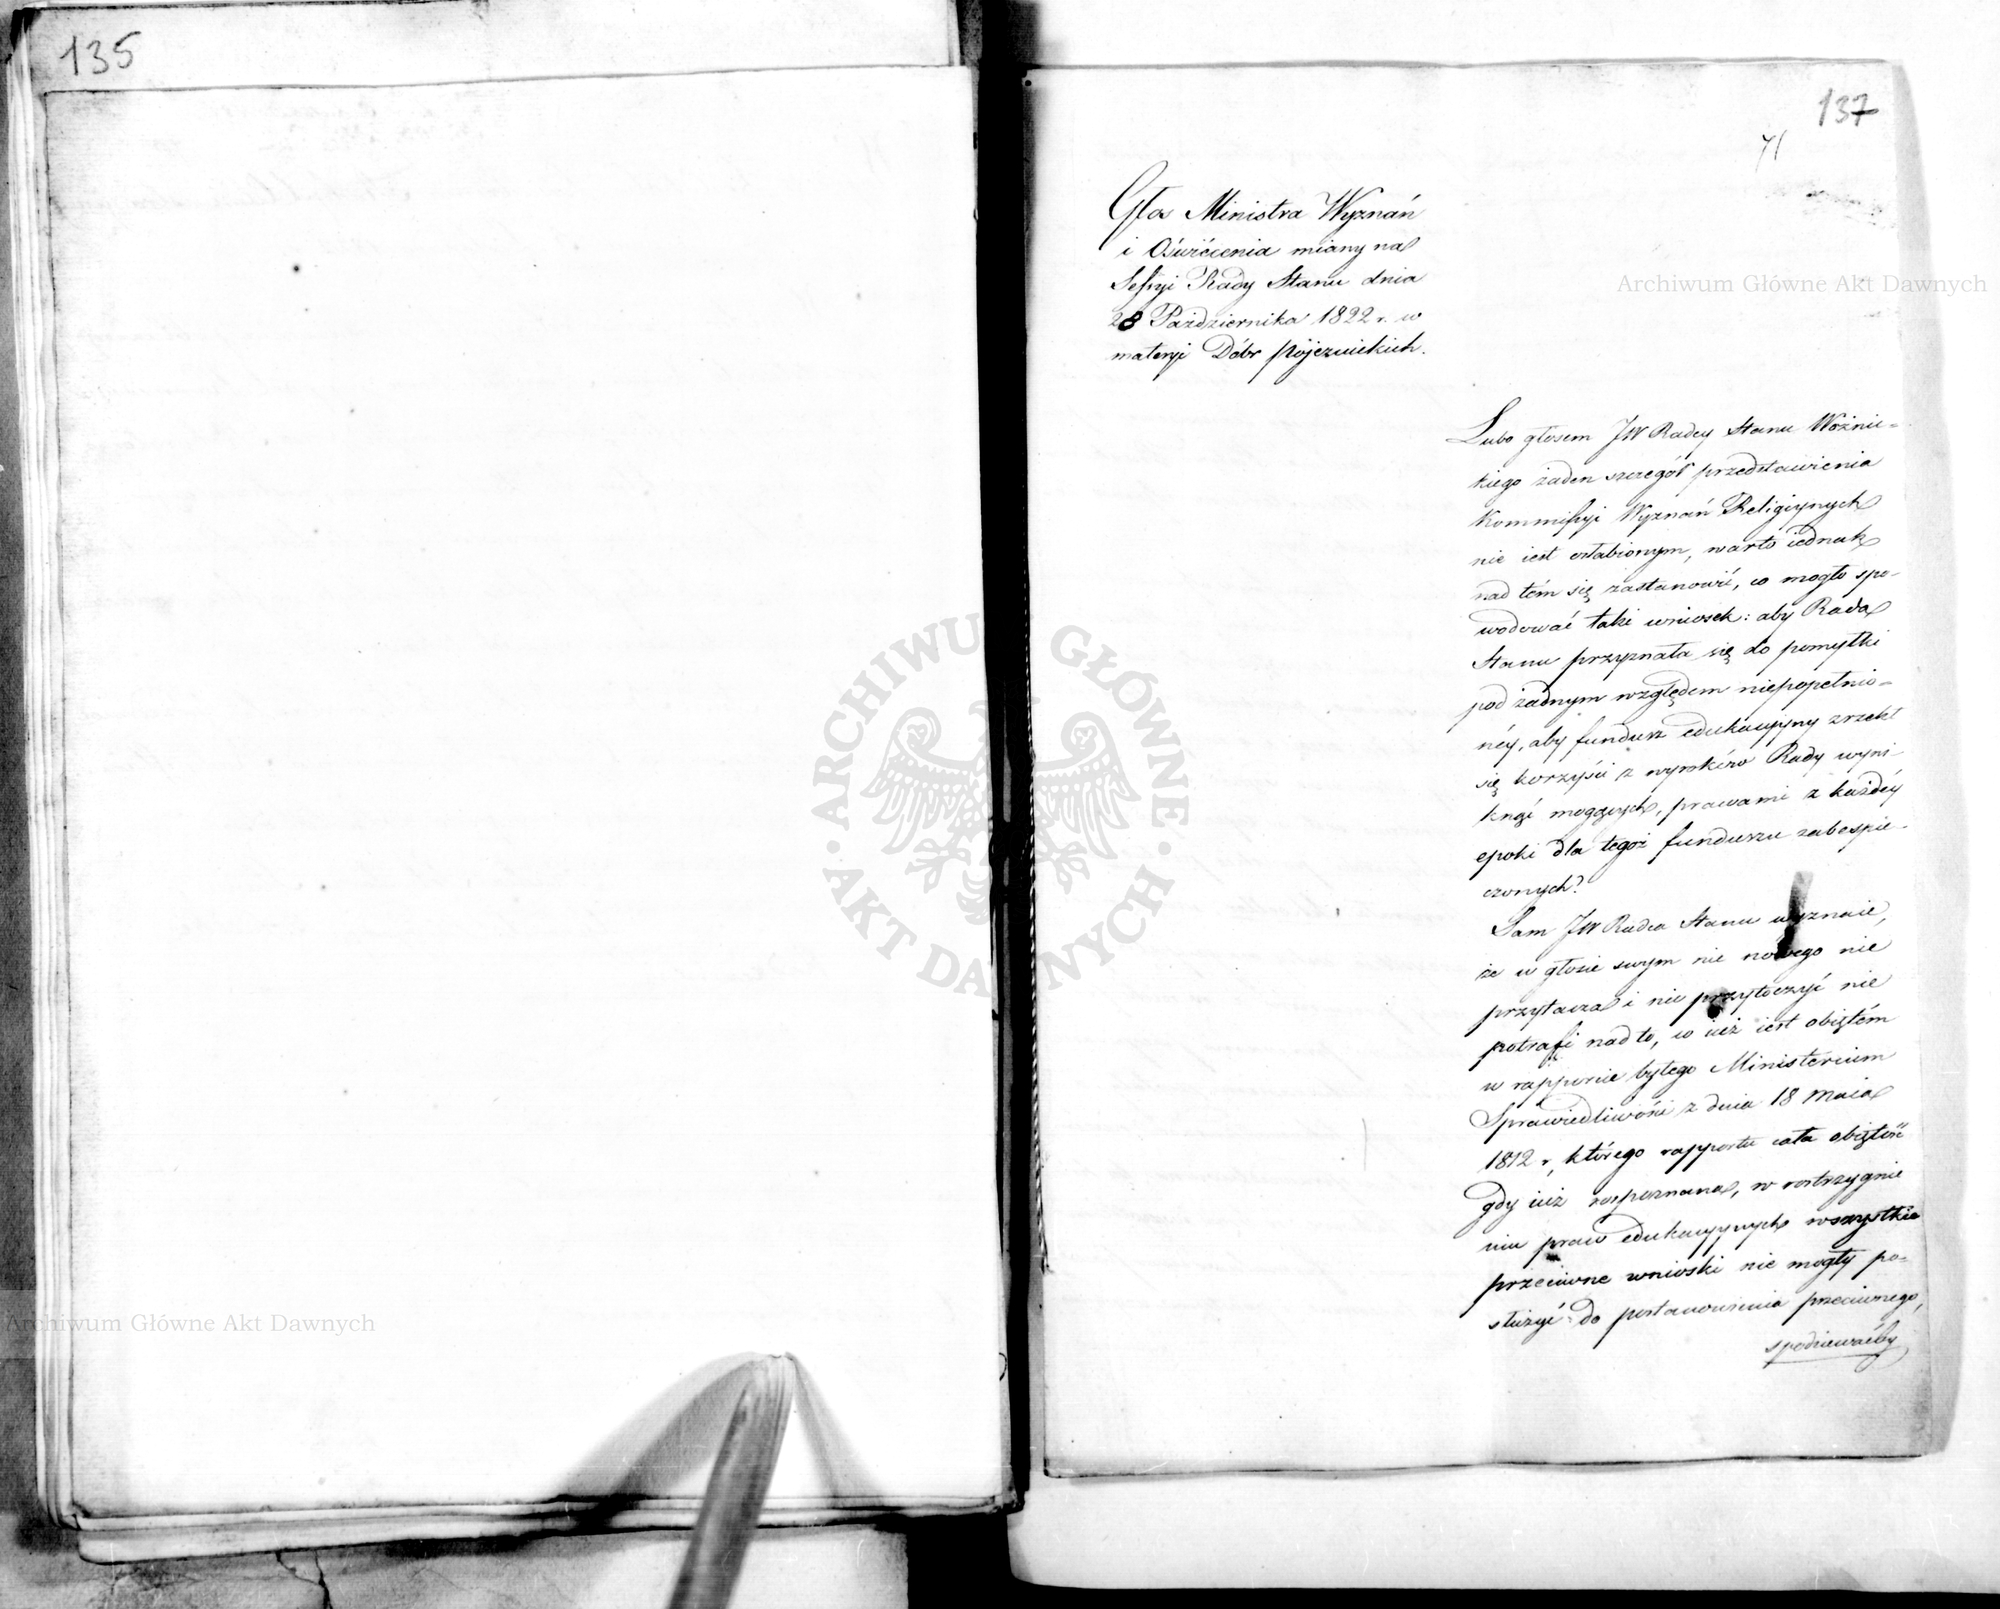 135
137
71
Głos Ministra Wyznań
i Oświécenia miany na
Sessyi Rady Stanu dnia
28 Października 1822 r. w
materyi Dóbr pojezuickich.
Lubo głosem JW Radcy Stanu Woźnic=
kiego żaden szczegół przedstawienia
Kommissyi Wyznań Religiynych
nie iest osłabionym, warto iednak
nad tém się zastanowić, co mogło spo-
wodować taki wniosek: aby Rada
Stanu przyznała się do pomyłki
pod żadnym względem niepopełnio=
néy, aby fundusz edukacyyny zrzekł
się korzyści z wyroków Rady wyni-
knąć mogących, prawami z każdéy
epoki dla tegoż funduszu zabespie-
czonych?
Sam JW Radca Stanu wyznaie,
że w głosie swym nic nowego nie
przytacza i nic przytoczyć nie
potrafi nad to, co iuż iest obiętém
w rapporcie byłego Ministerium
Sprawiedliwości z dnia 18 Maia
1812 r, którego rapportu cała obiętość
gdy iuż rozpoznana, w rostrzygnie
niu praw edukacyynych wszystkie
przeciwne wnioski nie mogły po=
służyć do postanowienia przeciwnego,
spodziewaćby
Archiwum Główne Akt Dawnych
Archiwum Główne Akt Dawnych
ARCHIWUM GŁÓWNE
AKT DAWNYCH